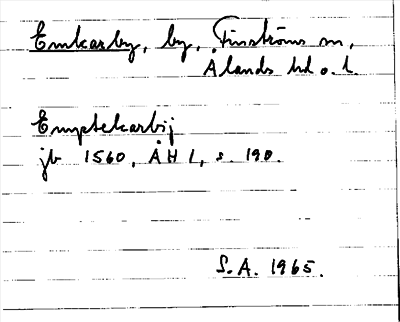 Emkarby, by, Finströms sn,
Ålands hd o. l.
Emptekarbij
jb 1560, ÅH 1, s. 190.
S.A. 1965.